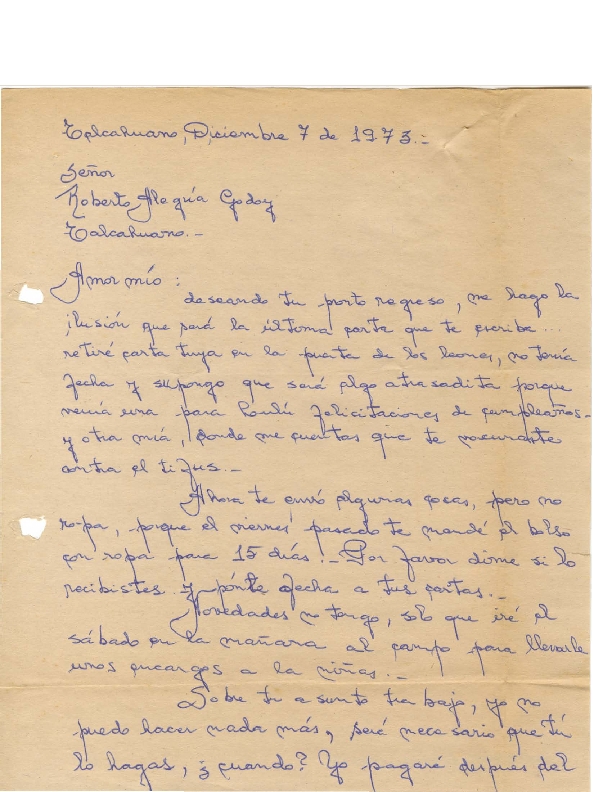 Talcahuano, Diciembre 7 de 1973.-
Señor
Roberto Alegría Godoy
Talcahuano.-
Amor mío:
deseando tu pronto regreso, me hago la
ilusión que será la última carta que te escriba...
retiré carta tuya en la puerta de los leones, no tenía
fecha y supongo que será algo atrasadita porque
venía una para Loulú felicitaciones de cumpleaños-
y otra mía, donde me cuentas que te vacunaste
contra el tifus.-
Ahora te envío algunas cocas, pero no
ropa, porque el viernes pasado te mandé el bolso
con ropa para 15 días.- Por favor dime si lo
recibistes y pónle fecha a tus cartas.-
Novedades no tengo, solo que iré el
sábado en la mañana al campo para llevarle
unos encargos a la niñas.-
Sobre tu asunto trabajo, yo no
puedo hacer nada más, será necesario que tú
lo hagas, ¿cuando? Yo pagaré después del